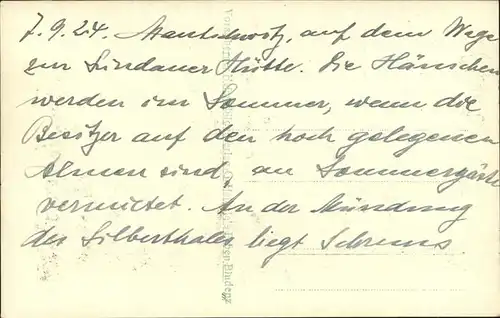 7.9.24. auf dem Wege
zur Lindauer Hütte. Die Häuschen
werden im Sommer, wenn die
Besitzer auf den hoch gelegenen
Almen sind, an Sommergäste
vermietet. An der Mündung
des Silberthales liegt Schruns